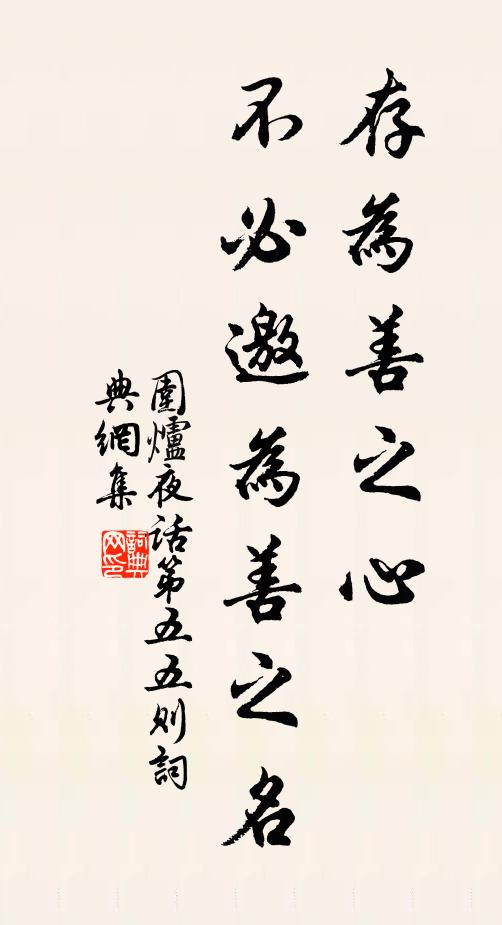 存為善之心
不必邀為善之名
圍爐夜话第五五则詞
典網集
詞典
网印